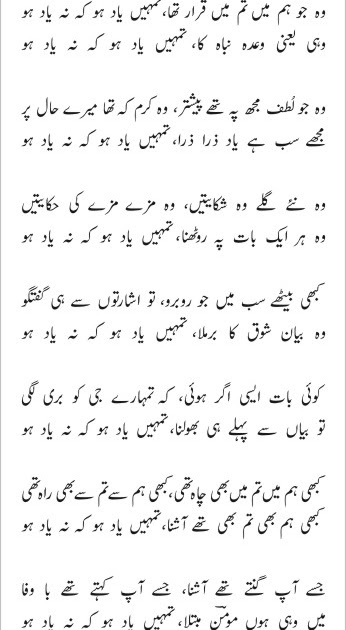 وہ جو ہم میں تم میں قرار تھا، تمہیں یاد ہو کہ نہ یاد ہو
وہی یعنی وعدہ نباہ کا، تمہیں یاد ہو کہ نہ یاد ہو
وہ جو لُطف مجھ پہ تھے پیشتر، وہ کرم کہ تھا میرے حال پر
مجھے سب ہے یاد ذرا ذرا، تمہیں یاد ہو کہ نہ یاد ہو
وہ نئے گلے وہ شکایتیں، وہ مزے مزے کی حکایتیں
وہ ہر ایک بات پہ روٹھنا، تمہیں یاد ہو کہ نہ یاد ہو
کبھی بیٹھے سب میں جو روبرو، تو اشارتوں سے ہی گفتگو
وہ بیان شوق کا برملا، تمہیں یاد ہو کہ نہ یاد ہو
کوئی بات ایسی اگر ہوئی، کہ تمہارے جی کو بری لگی
تو بیاں سے پہلے ہی بھولنا، تمہیں یاد ہو کہ نہ یاد ہو
کبھی ہم میں تم میں بھی چاہ تھی، کبھی ہم سے تم سے بھی راہ تھی
کبھی ہم بھی تم بھی تھے آشنا، تمہیں یاد ہو کہ نہ یاد ہو
جسے آپ گنتے تھے آشنا، جسے آپ کہتے تھے با وفا
میں وہی ہوں مومنؔ مبتلا، تمہیں یاد ہو کہ نہ یاد ہو